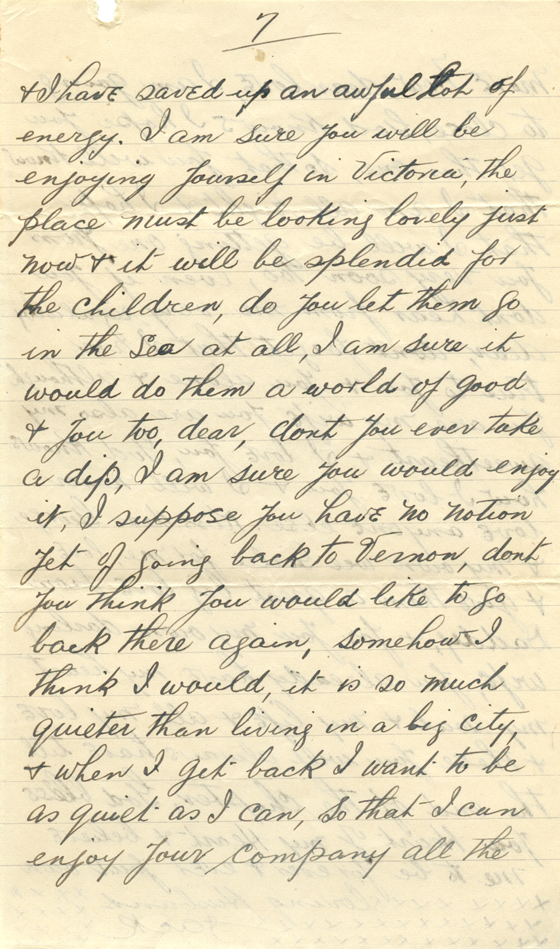 7
& I have saved up an awful lot of
energy. I am sure you will be
enjoying yourself in Victoria, the
place must be looking lovely just
now & it will be splendid for
the children, do you let them go
in the Sea at all, I am sure it
would do them a world of good
& you too, dear, dont you ever take
a dip, I am sure you would enjoy
it, I suppose you have no notion
yet of going back to Vernon, dont
you think you would like to go
back there again, somehow I
think I would, it is so much
quieter than living in a big city,
& when I get back I want to be
as quiet as I can, so that I can
enjoy your company all the